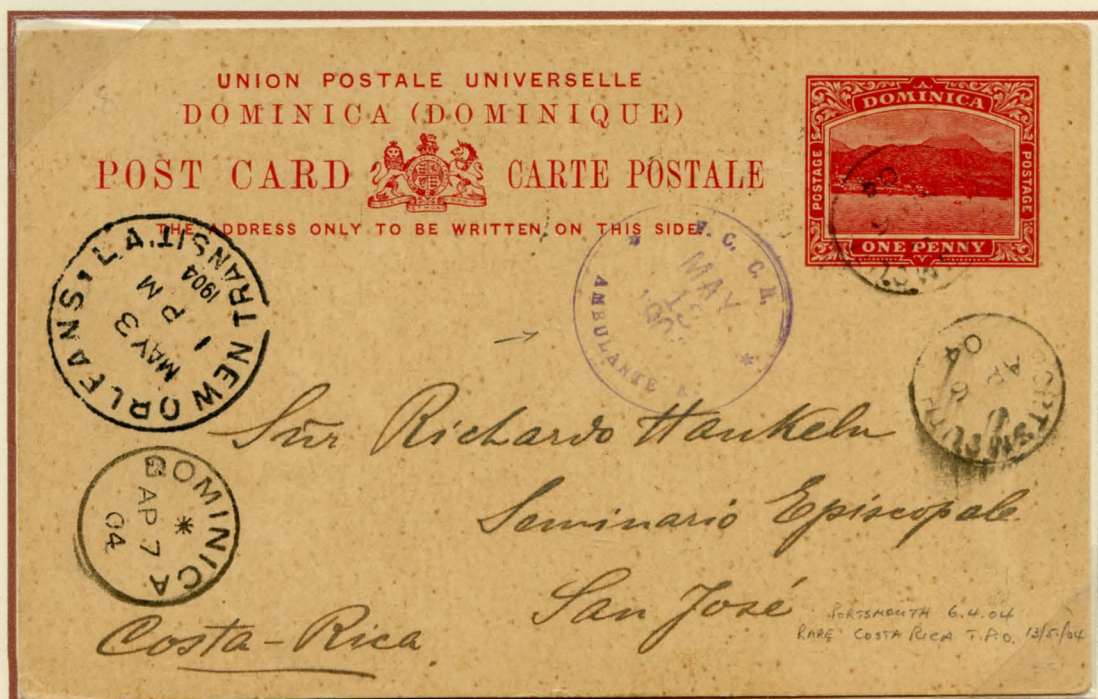 UNION POSTALE UNIVERSELLE
DOMINICA (DOMINIQUE)
POST CARD CARTE POSTALE
THE ADDRESS ONLY TO BE WRITTEN ON THIS SIDE.
DOMINICA
POSTAGE
POSTAGE
ONE PENNY
NEW ORLEANS, LA.
TRANSIT
MAY 3
1 PM
1904
F. C. C. R.
MAY
13
AMBULANTE
PORTSMOUTH
AP 6
04
DOMINICA
AP 7
04
Sũr Richardo Hankeln
Seminario Episcopale
San José
Costa-Rica
PORTSMOUTH 6.4.04
RARE COSTA RICA T.P.O. 13/5/04